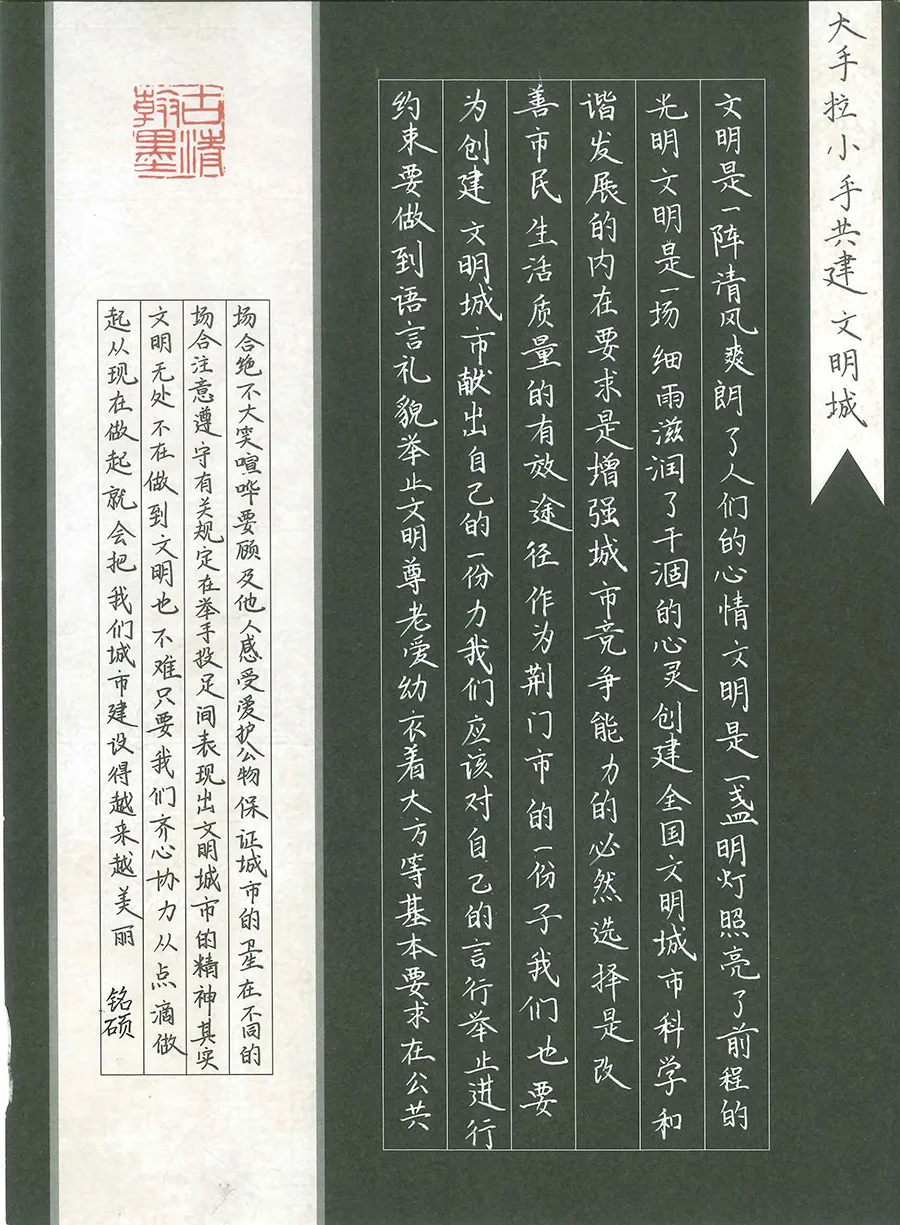 大手拉小手共建文明城
文明是一阵清风爽朗了人们的心情文明是一盏明灯照亮了前程的
光明文明是一场细雨滋润了干涸的心灵创建全国文明城市科学和
谐发展的内在要求是增强城市竞争能力的必然选择是改
善市民生活质量的有效途径作为荆门市的一份子我们也要
为创建文明城市献出自己的一份力我们应该对自己的言行举止进行
约束要做到语言礼貌举止文明尊老爱幼衣着大方等基本要求在公共
场合绝不大笑喧哗要顾及他人感受爱护公物保证城市的卫生在不同的
场合注意遵守有关规定在举手投足间表现出文明城市的精神其实
文明无处不在做到文明也不难只要我们齐心协力从点滴做
起从现在做起就会把我们城市建设得越来越美丽
铭硕
翰墨